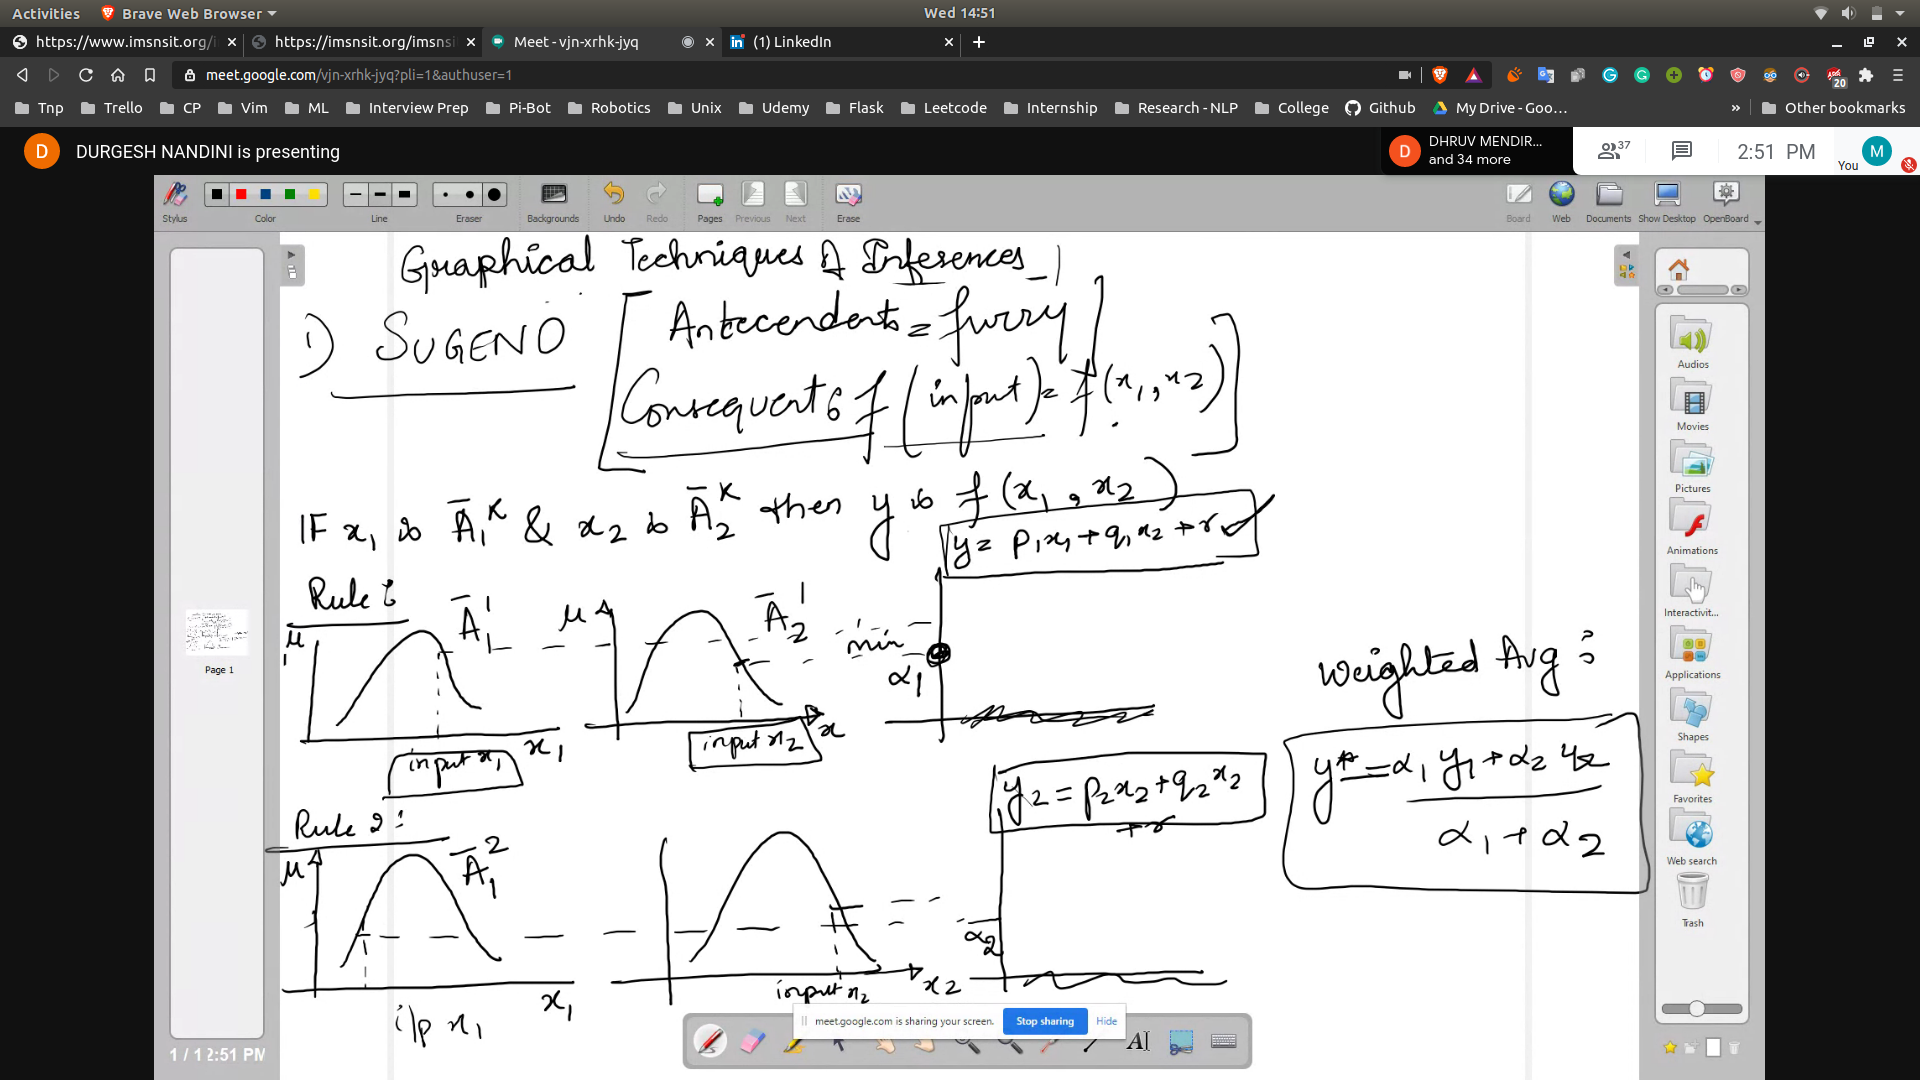 Activities Brave Web Browser Wed 14:51
https://www.imsnsit.org/i https://imsnsit.org/imsnsi Meet - vjn-xrhk-jyq (1) LinkedIn
meet.google.com/vjn-xrhk-jyq?pli=1&authuser=1 20
Tnp Trello CP Vim ML Interview Prep Pi-Bot Robotics Unix Udemy Flask Leetcode Internship Research - NLP College Github My Drive - Goo... » Other bookmarks
D DURGESH NANDINI is presenting
D DHRUV MENDIR... and 34 more
37 2:51 PM You M
Stylus Color Line Eraser Backgrounds Undo Redo Pages Previous Next Erase Board Web Documents Show Desktop OpenBoard
Graphical Techniques of Inferences
1) SUGENO
Antecendents = fuzzy
Consequent : f (input) = f (x1, x2)
IF x1 is A̅1^K & x2 is A̅2^K then y is f (x1, x2)
y = p1x1 + q1x2 + r
Rule 1:
μ A̅1^1 μ A̅2^1 min α1
input x1 x1 input x2 x
Weighted Avg :
y* = α1 y1 + α2 y2
α1 + α2
y2 = p2x2 + q2x2 + r
Rule 2 :
μ A̅1^2 α2
i/p x1 x1 input x2 x2
Page 1
Audios
Movies
Pictures
Animations
Interactivit...
Applications
Shapes
Favorites
Web search
Trash
meet.google.com is sharing your screen. Stop sharing Hide
1 / 1 2:51 PM